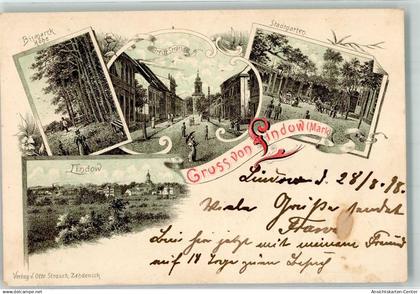 Bismarck
Höhe
Stadtgarten
Gruss von Lindow (Mark)
Lindow
Lindow d. 28/8 98.
Viele Grüße sendet
Franz
Bin hier jetzt mit meinem Freund
auf 14 Tage zum Besuch
Verlag v. Otto Strauch, Zehdenick
Ansichtskarten-Center